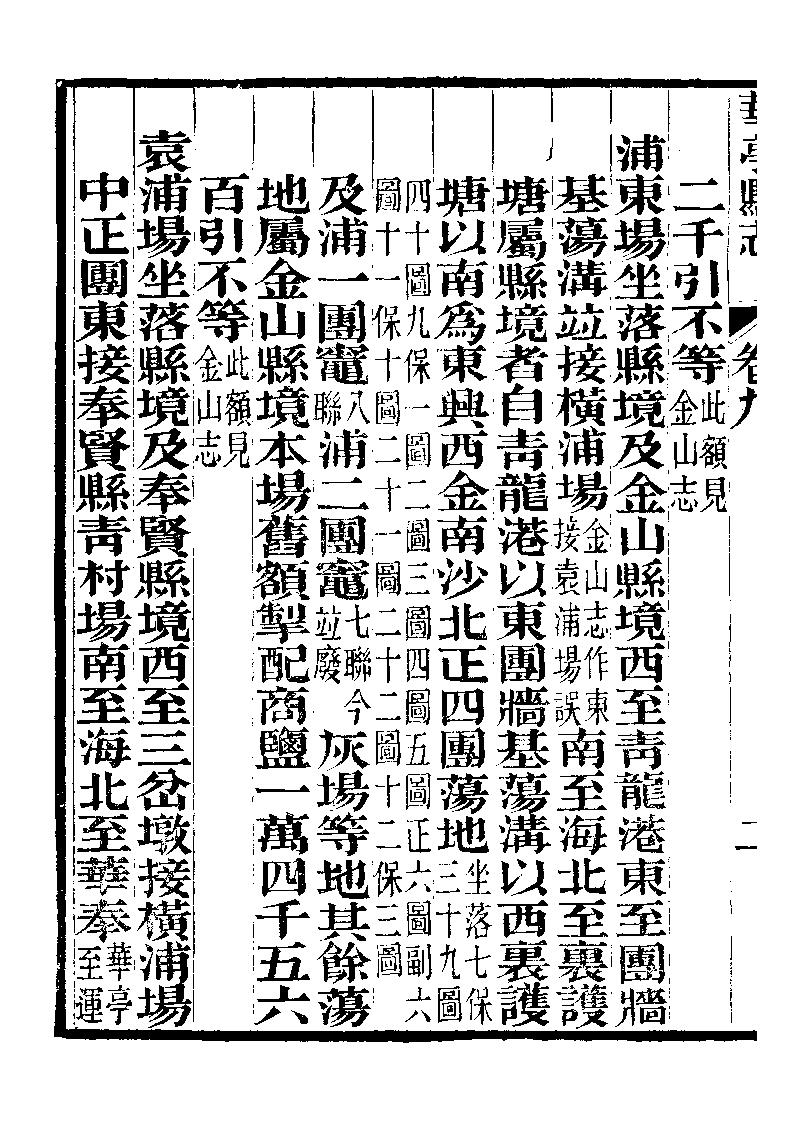 華亭縣志 卷九 二
二千引不等此額見金山志
浦東場坐落縣境及金山縣境西至靑龍港東至團牆
基蕩溝竝接橫浦場金山志作東接袁浦場誤南至海北至裏護
塘屬縣境者自靑龍港以東團牆基蕩溝以西裏護
塘以南爲東興西金南沙北正四團蕩地坐落七保三十九圖
四十圖九保一圖二圖三圖四圖五圖正六圖副六
圖十一保十圖二十一圖二十二圖十二保三圖
及浦一團竈八聯浦二團竈七聯今竝廢灰場等地其餘蕩
地屬金山縣境本場舊額掣配商鹽一萬四千五六
百引不等此額見金山志
袁浦場坐落縣境及奉賢縣境西至三岔墩接橫浦場
中正團東接奉賢縣靑村場南至海北至華奉華亭至運